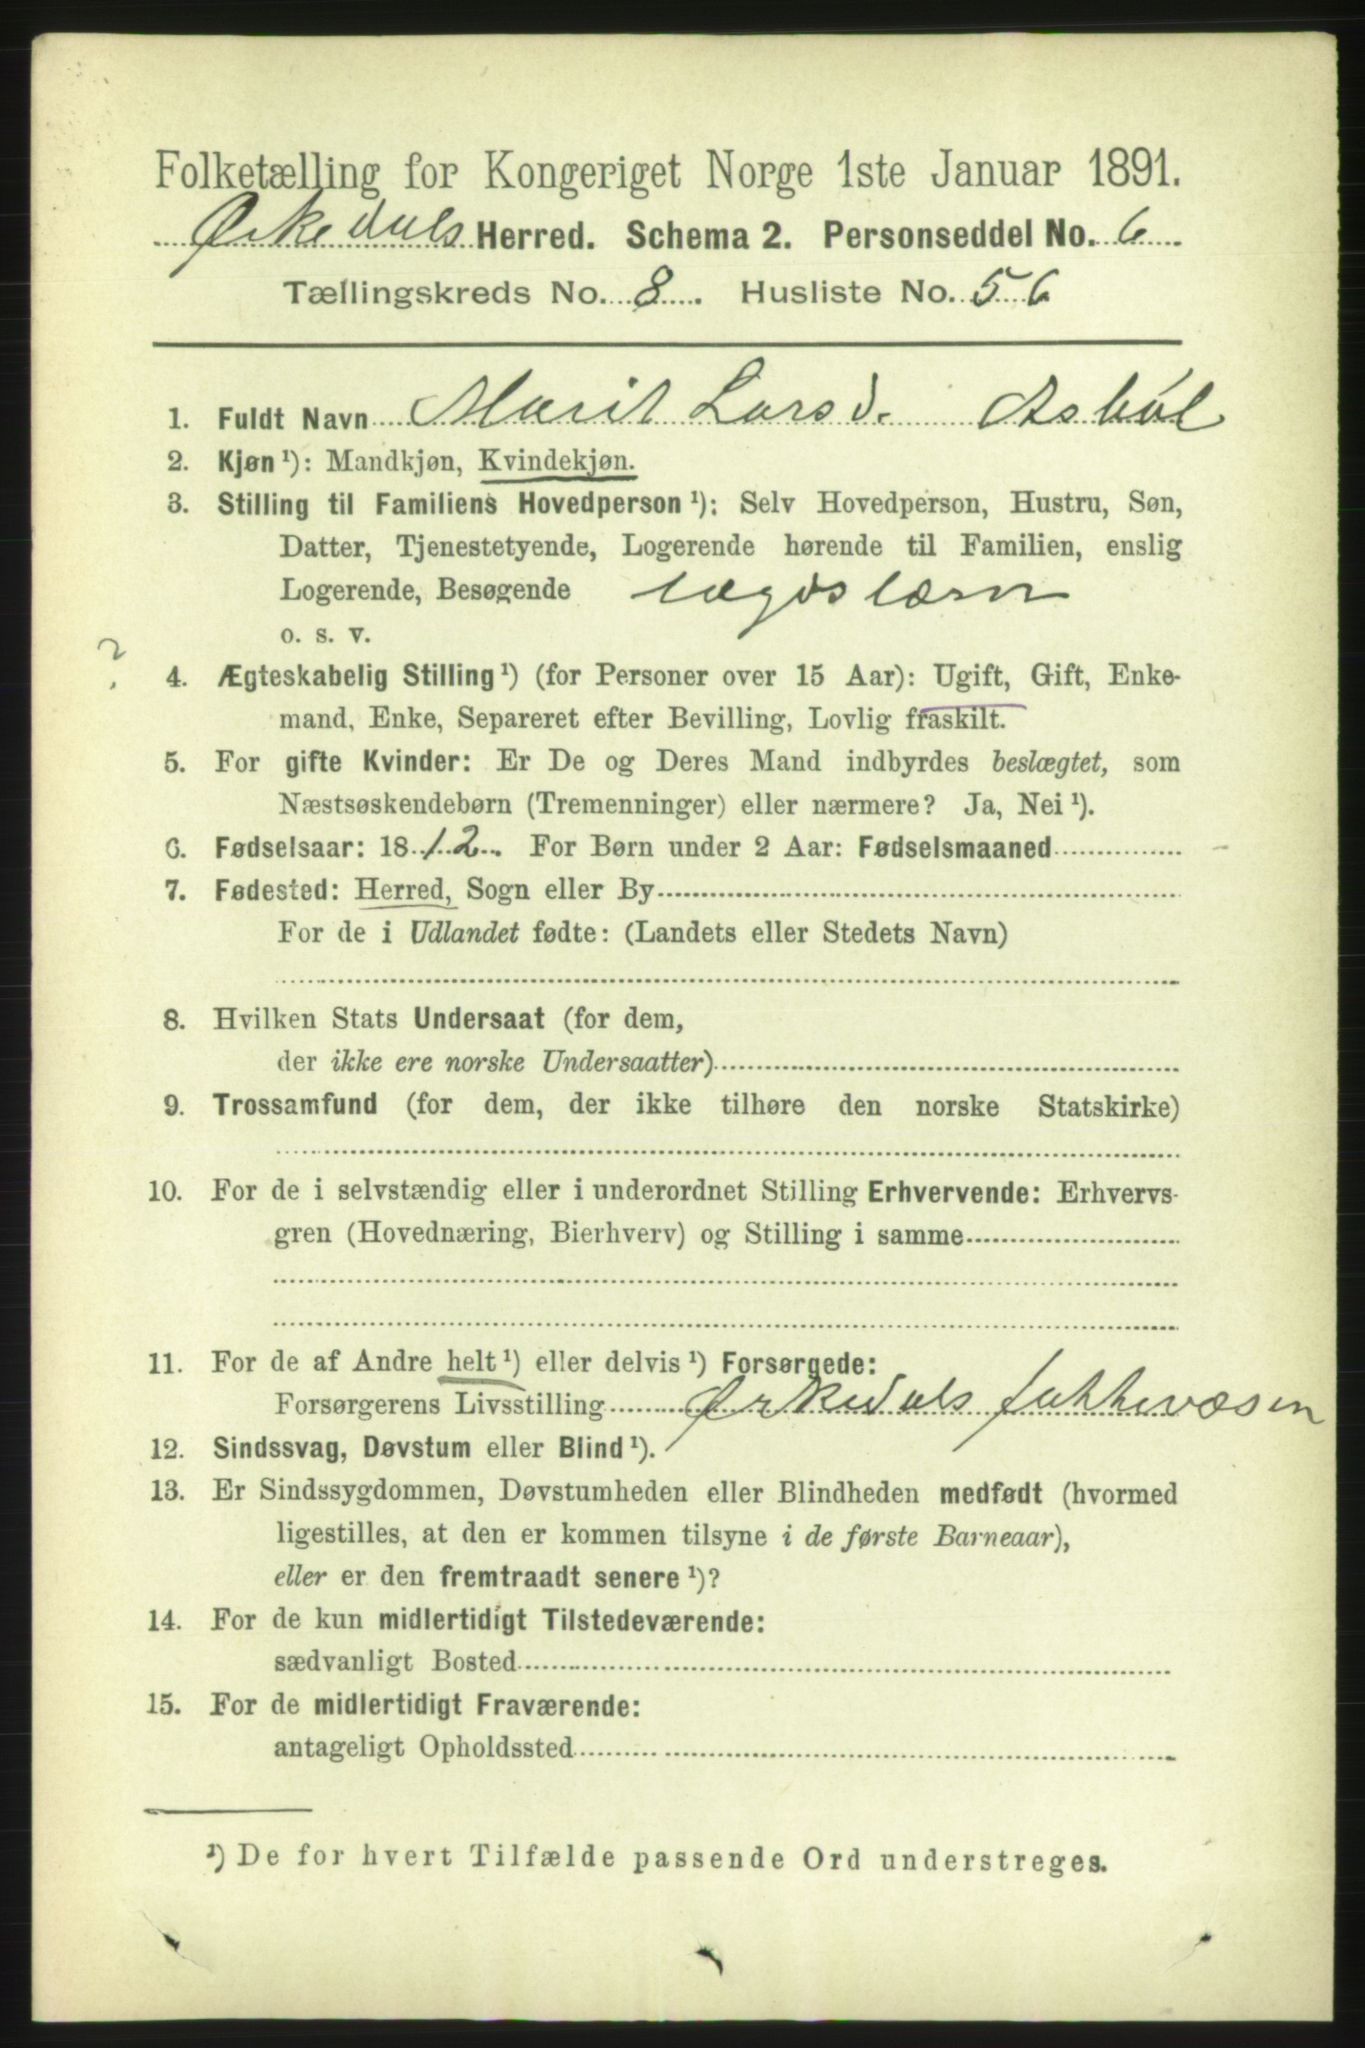 Folketælling for Kongeriget Norge 1ste Januar 1891.
Ørkedals Herred. Schema 2. Personseddel No. 6
Tællingskreds No. 8. Husliste No. 56
1. Fuldt Navn Marit Larsd. Asbøl
2. Kjøn ¹): Mandkjøn, Kvindekjøn.
3. Stilling til Familiens Hovedperson ¹): Selv Hovedperson, Hustru, Søn,
Datter, Tjenestetyende, Logerende hørende til Familien, enslig
Logerende, Besøgende lægdslæm
o. s. v.
?
4. Ægteskabelig Stilling ¹) (for Personer over 15 Aar): Ugift, Gift, Enke-
mand, Enke, Separeret efter Bevilling, Lovlig fraskilt.
5. For gifte Kvinder: Er De og Deres Mand indbyrdes beslægtet, som
Næstsøskendebørn (Tremenninger) eller nærmere? Ja, Nei ¹).
6. Fødselsaar: 1812. For Børn under 2 Aar: Fødselsmaaned
7. Fødested: Herred, Sogn eller By
For de i Udlandet fødte: (Landets eller Stedets Navn)
8. Hvilken Stats Undersaat (for dem,
der ikke ere norske Undersaatter)
9. Trossamfund (for dem, der ikke tilhøre den norske Statskirke)
10. For de i selvstændig eller i underordnet Stilling Erhvervende: Erhvervs-
gren (Hovednæring, Bierhverv) og Stilling i samme
11. For de af Andre helt ¹) eller delvis ¹) Forsørgede:
Forsørgerens Livsstilling Ørkedals fattivæsen
12. Sindssvag, Døvstum eller Blind ¹).
13. Er Sindssygdommen, Døvstumheden eller Blindheden medfødt (hvormed
ligestilles, at den er kommen tilsyne i de første Barneaar),
eller er den fremtraadt senere ¹)?
14. For de kun midlertidigt Tilstedeværende:
sædvanligt Bosted
15. For de midlertidigt Fraværende:
antageligt Opholdssted
¹) De for hvert Tilfælde passende Ord understreges.